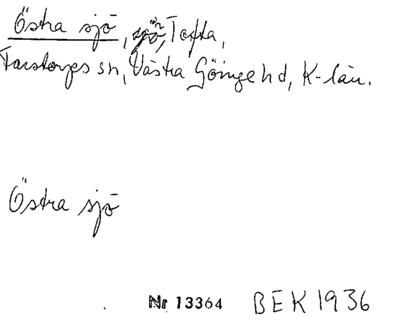 Östra sjö, sjön, Tofta,
Farstorps sn, Västra Göinge hd, K-län.
Östra sjö
Nr 13364 BEK 1936